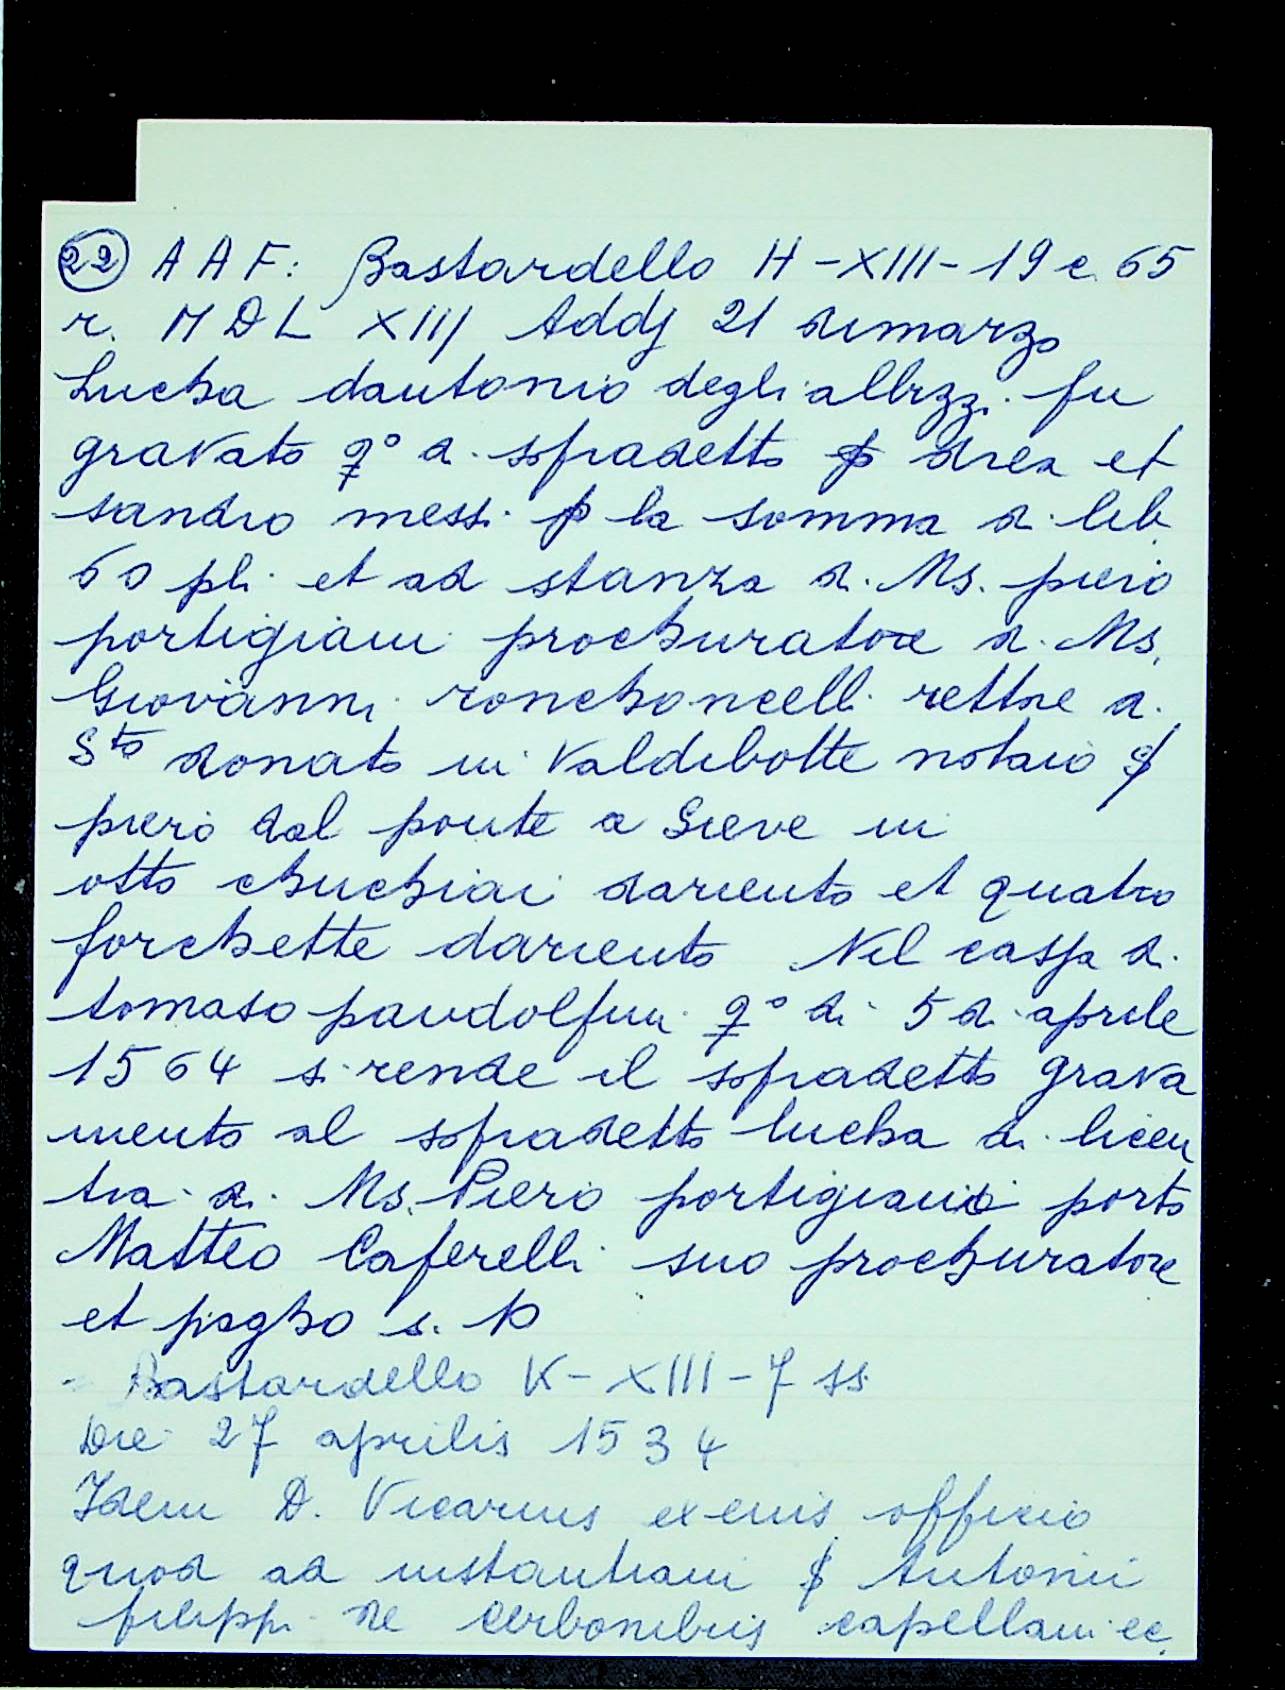 22 A A F: Bastardello H-XIII-19 c. 65
r. MDLXIIJ Addj 21 dimarzo
Lucha dantonio degli albizzi. fu
gravato q° d. sopradetto p drea et
sandro messi. p la somma d. lib.
60 pli. et ad stanza d. Ms. piero
portigiani prochuratore d. Ms.
Giovanni ronchoncelli rettore d.
Sto donato in Valdibotte notaio
piero dal ponte a Sieve in
otto chuchiai dariento et quatro
forchette dariento Nel cassa d.
tomaso pandolfini q° di 5 d. aprile
1564 si rende il sopradetto grava
mento al sopradetto lucha di licen
tia d. Ms. Piero portigiani porto
Matteo Caferelli suo prochuratore
et pagho s. 10
Bastardello K-XIII-7 ss
Die 27 aprilis 1534
Idem D. Vicarius ex eius officio
quod ad instantiam Antonii
filippi de Cerbonibus capellani ec.